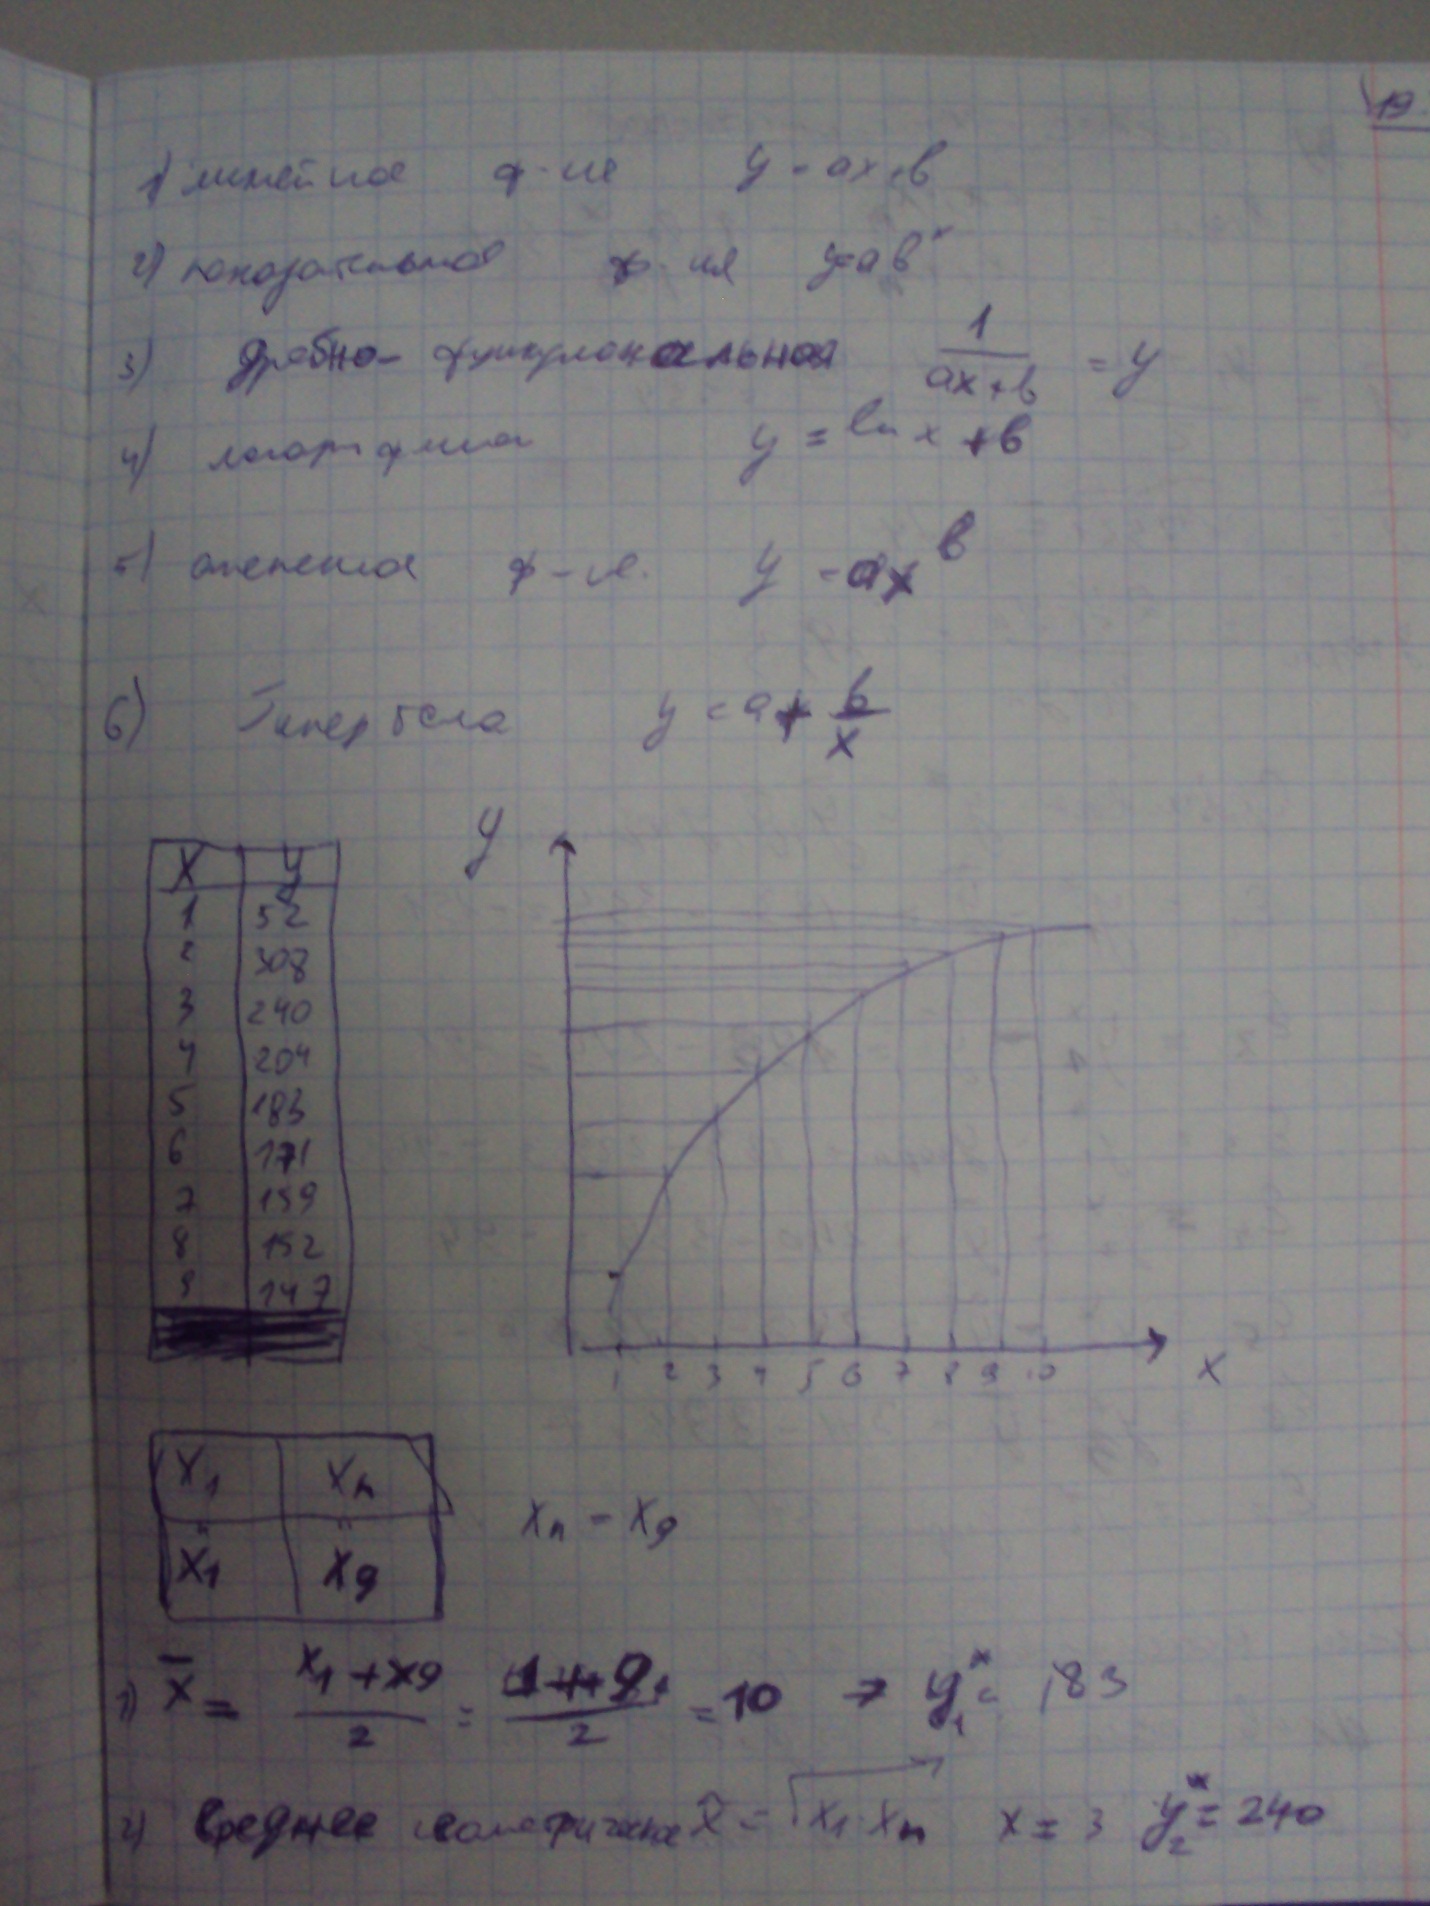 19.
1) линейная ф-ия y = ax+b
2) показательная ф-ия y=ab^x
3) Дробно-функциональная 1/(ax+b) = y
4) логарифмич y = ln x + b
5) степенная ф-ия. y = ax^b
6) Гипербола y = a + b/x
y
X y
1 52
2 308
3 240
4 204
5 183
6 171
7 159
8 152
9 147
1 2 3 4 5 6 7 8 9 10 x
X₁ Xₙ
X₁ X₉
Xₙ – X₉
1) x̄ = (x₁+x₉)/2 = (1+9)/2 = 10 → y₁* = 183
2) Среднее геометрическое x̄ = √(x₁·xₙ) x = 3 y₂* = 240